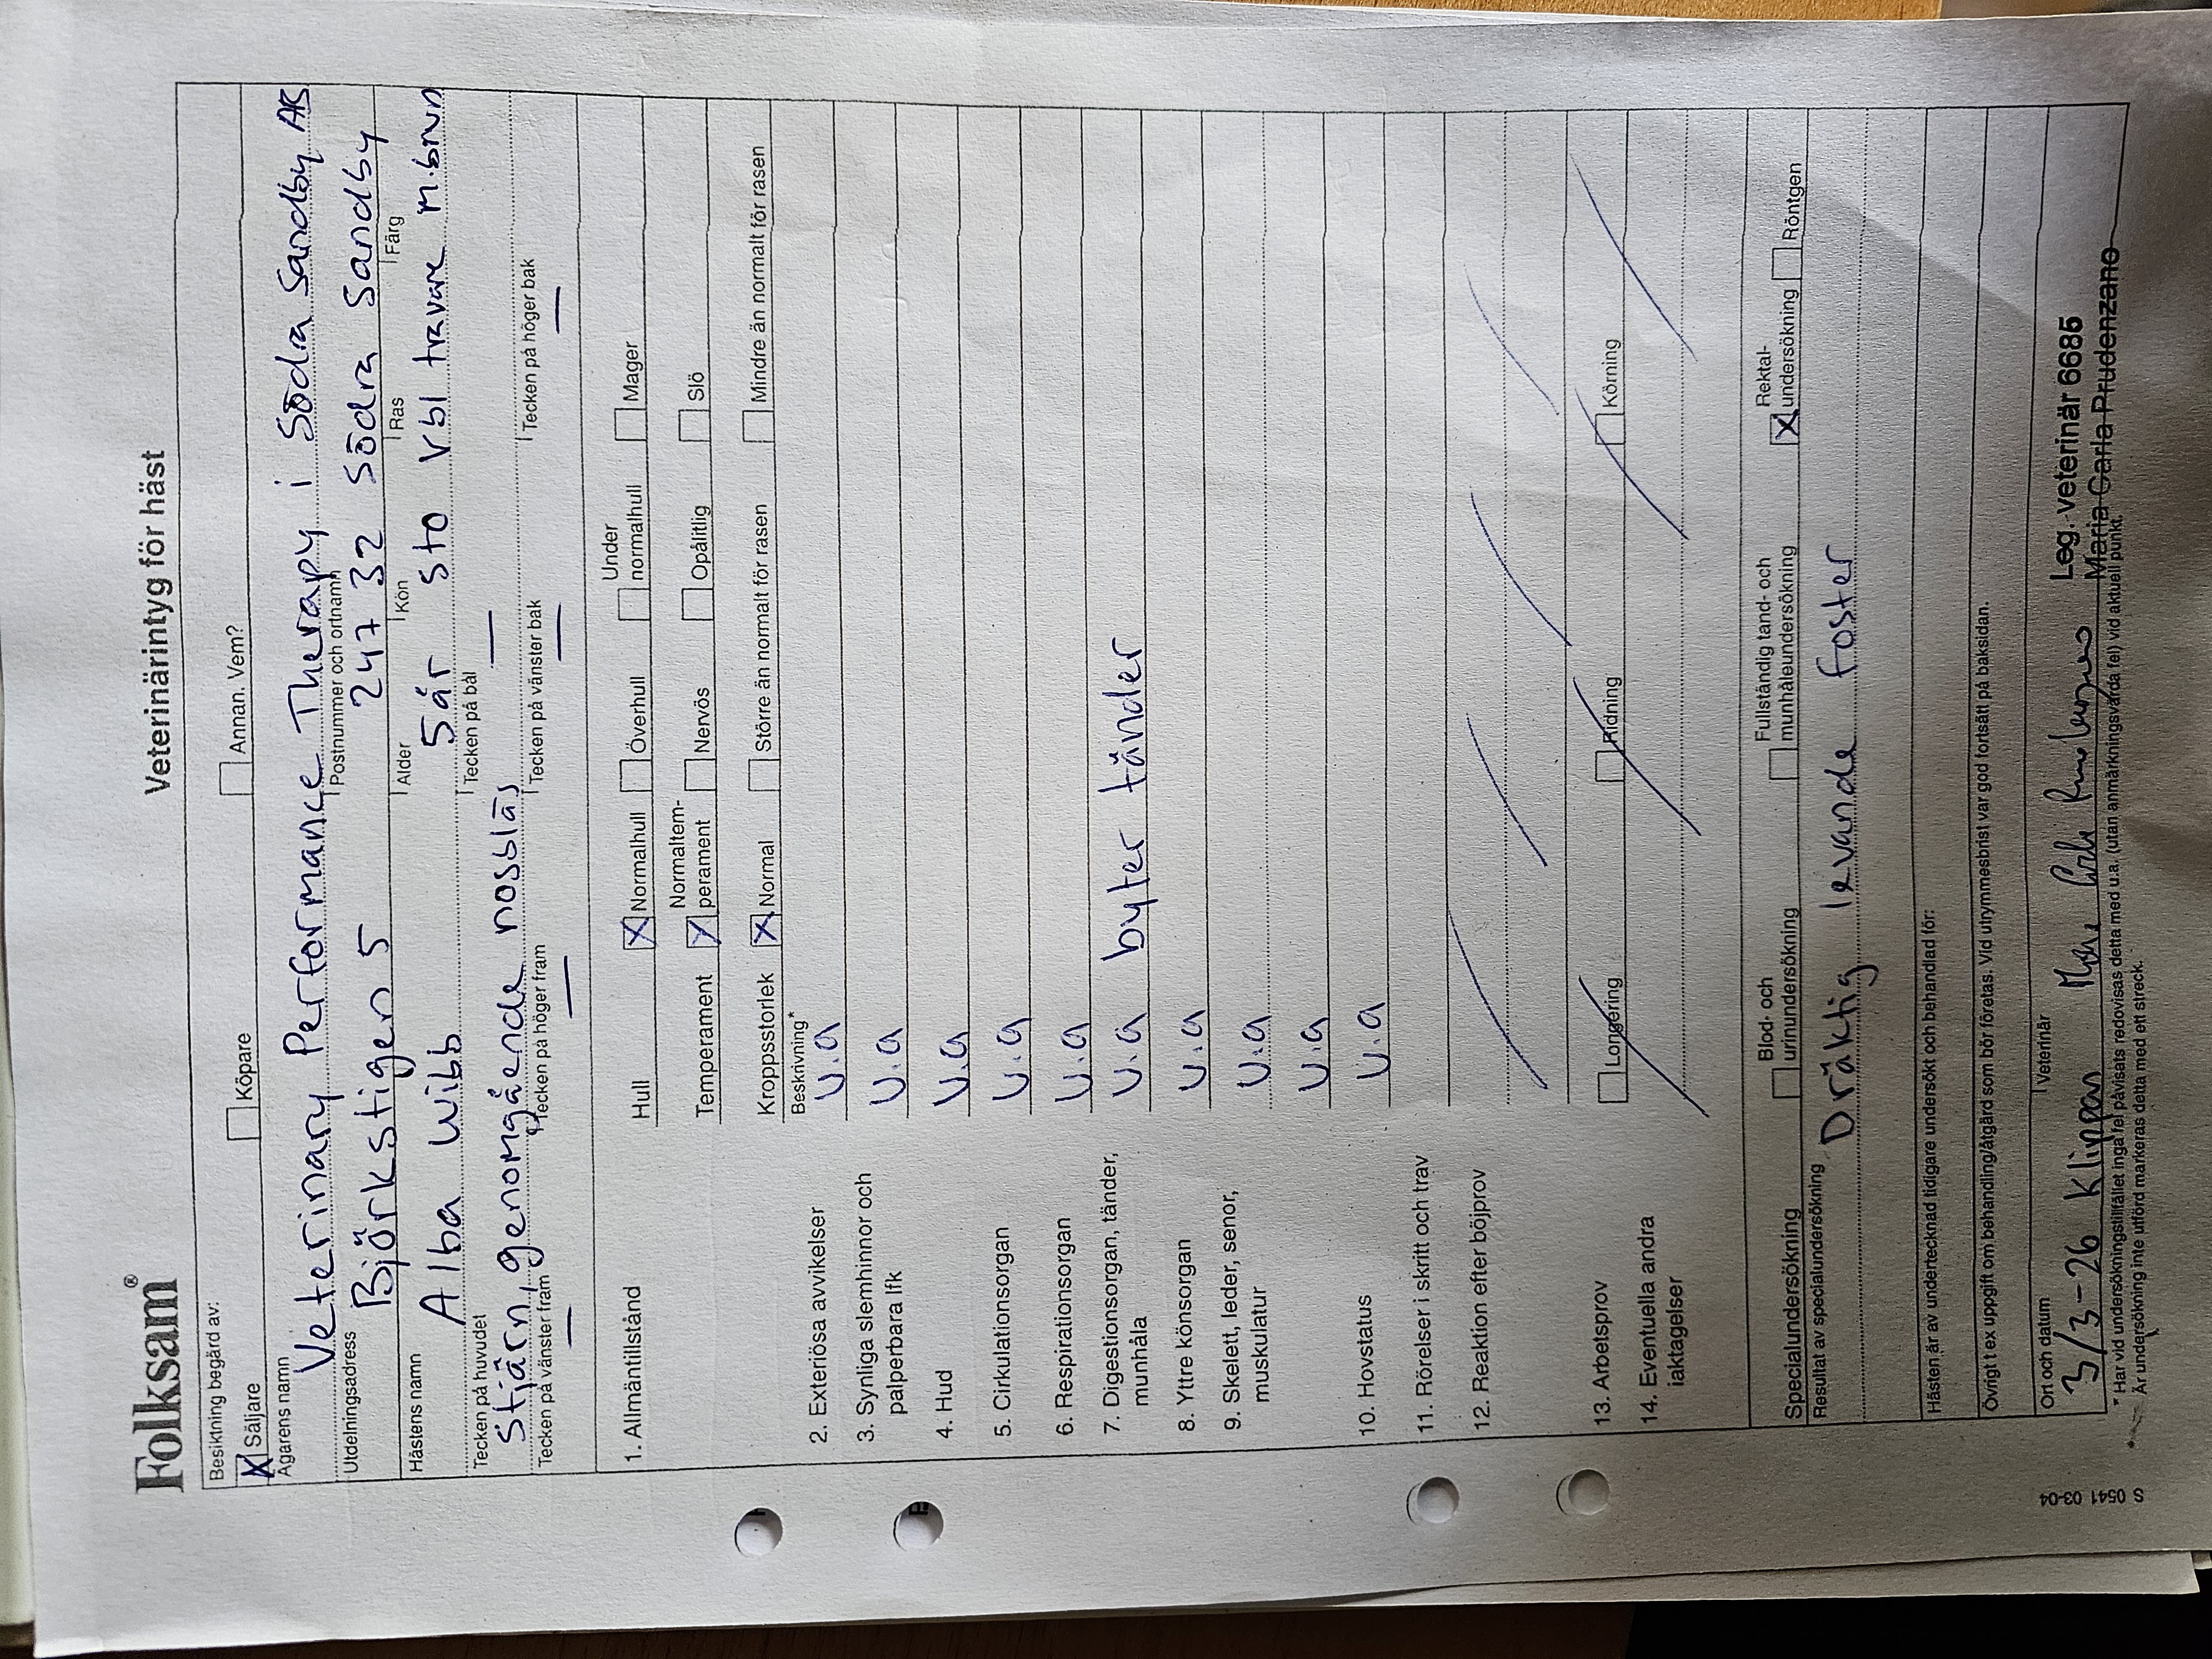 Folksam®
Veterinärintyg för häst
Besiktning begärd av:
X Säljare Köpare Annan. Vem?
Ägarens namn
Veterinary Performance Therapy i Södra Sandby AB
Utdelningsadress Postnummer och ortnamn
Björkstigen 5 247 32 Södra Sandby
Hästens namn Ålder Kön Ras Färg
Alba Wibb 5år sto vbl travare m.brun
Tecken på huvudet Tecken på bål
Stjärn, genomgående nosbläs —
Tecken på vänster fram Tecken på höger fram Tecken på vänster bak Tecken på höger bak
— — — —
1. Allmäntillstånd Hull X Normalhull Överhull Under normalhull Mager
Temperament X Normaltem-perament Nervös Opålitlig Slö
Kroppsstorlek X Normal Större än normalt för rasen Mindre än normalt för rasen
Beskrivning*
2. Exteriösa avvikelser u.a
3. Synliga slemhinnor och palperbara lfk u.a
4. Hud u.a
5. Cirkulationsorgan u.a
6. Respirationsorgan u.a
7. Digestionsorgan, tänder, munhåla u.a byter tänder
8. Yttre könsorgan u.a
9. Skelett, leder, senor, muskulatur u.a
u.a
10. Hovstatus u.a
11. Rörelser i skritt och trav
12. Reaktion efter böjprov
13. Arbetsprov Longering Ridning Körning
14. Eventuella andra iakttagelser
Specialundersökning Blod- och urinundersökning Fullständig tand- och munhåleundersökning X Rektal-undersökning Röntgen
Resultat av specialundersökning
Dräktig levande foster
Hästen är av undertecknad tidigare undersökt och behandlad för:
Övrigt t ex uppgift om behandling/åtgärd som bör företas. Vid utrymmesbrist var god fortsätt på baksidan.
Ort och datum Veterinär
3/3-26 Klippan
Leg. veterinär 6685
Maria Carla Prudenzano
* Har vid undersökningstillfället inga fel påvisats redovisas detta med u.a. (utan anmärkningsvärda fel) vid aktuell punkt.
Är undersökning inte utförd markeras detta med ett streck.
S 0541 03-04